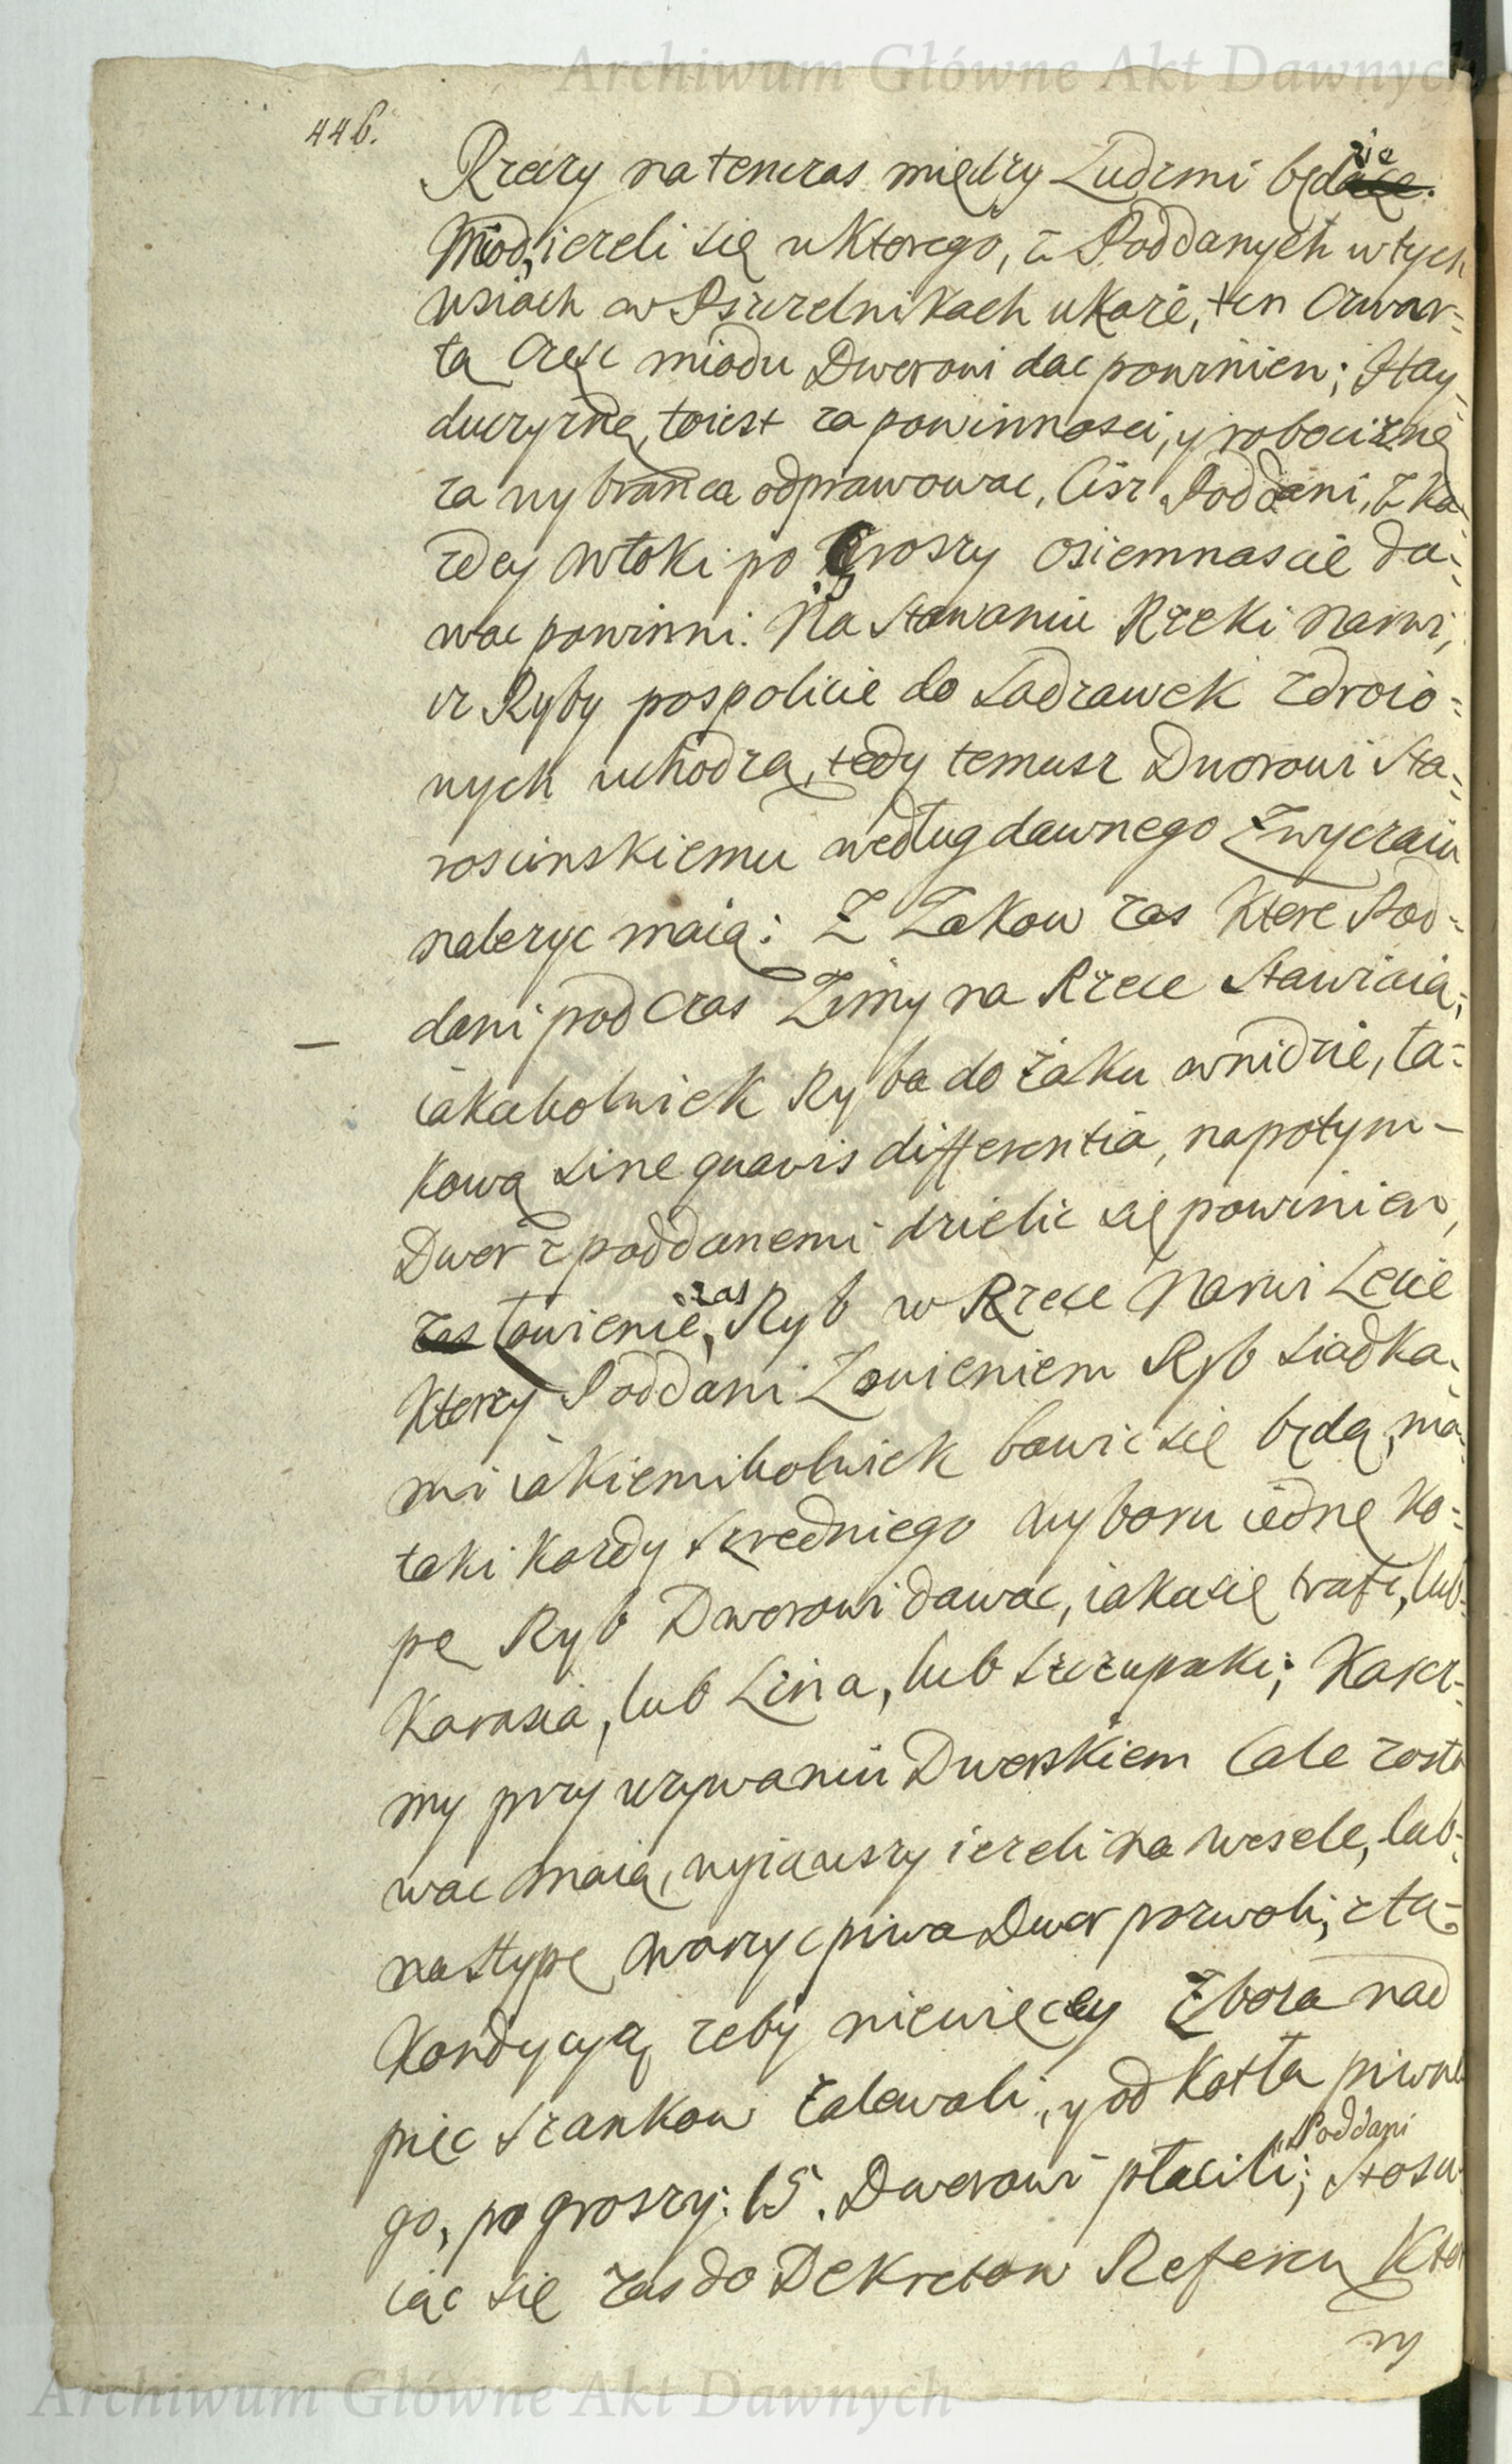 Archiwum Główne Akt Dawnych
446.
Rzeczy natenczas między Ludzmi będzie.
Miod, iezeli się u Ktorego, z Poddanych w tych
wsiach w Pszczelnikach ukaże, ten Czwar=
tą Częsc miodu Dworowi dac powinien; Hay=
duczyznę, toiest za powinnosci, y robociznę
za wybranca odprawowac, Ciż Poddani, z Ka=
zdey włoki po Groszy osiemnascie da=
wac powinni. Na Stawaniu Rzeki Narwi,
iz Ryby pospolicie do Sadzawek zdroio=
wych uchodzą, tedy temusz Dworowi Sta=
roscinskiemu według dawnego Zwyczaiu
nalezyc maią: Z Zakow zas Ktore Pod=
dani pod czas Zimy na Rzece Stawiaią;
iakakolwiek Ryba do żaku wnidzie, ta=
kową sine quavis differentia, napotym-
Dwor z poddanemi dzielic się powinien,
zas łowienie, zas Ryb w Rzece Narwi Lecie
Ktorzy Poddani Łowieniem Ryb Siadka=
mi iakiemikolwiek bawic się będą, ma=
taki Kozdy szredniego wyboru iednę Ko=
pę Ryb Dworowi dawac, iaka się trafi, lub=
Karasia, lub Lina, lub Szczupaki; Karcz=
my przy uzywaniu Dworskiem Cale zosta
wac maią, wyiąwszy iezeli na Wesele, lub=
na Stypę, warzyc piwa Dwor pozwoli, z tą=
Kondycyą, zeby niewięcey Zboza nad
pięc szankow zalewali, y od Kotła piwne
go, po groszy: 15. Dworowi płacili; Poddani Stosu
iąc się zas do Dekretow Referen Kto
ry
Archiwum Główne Akt Dawnych